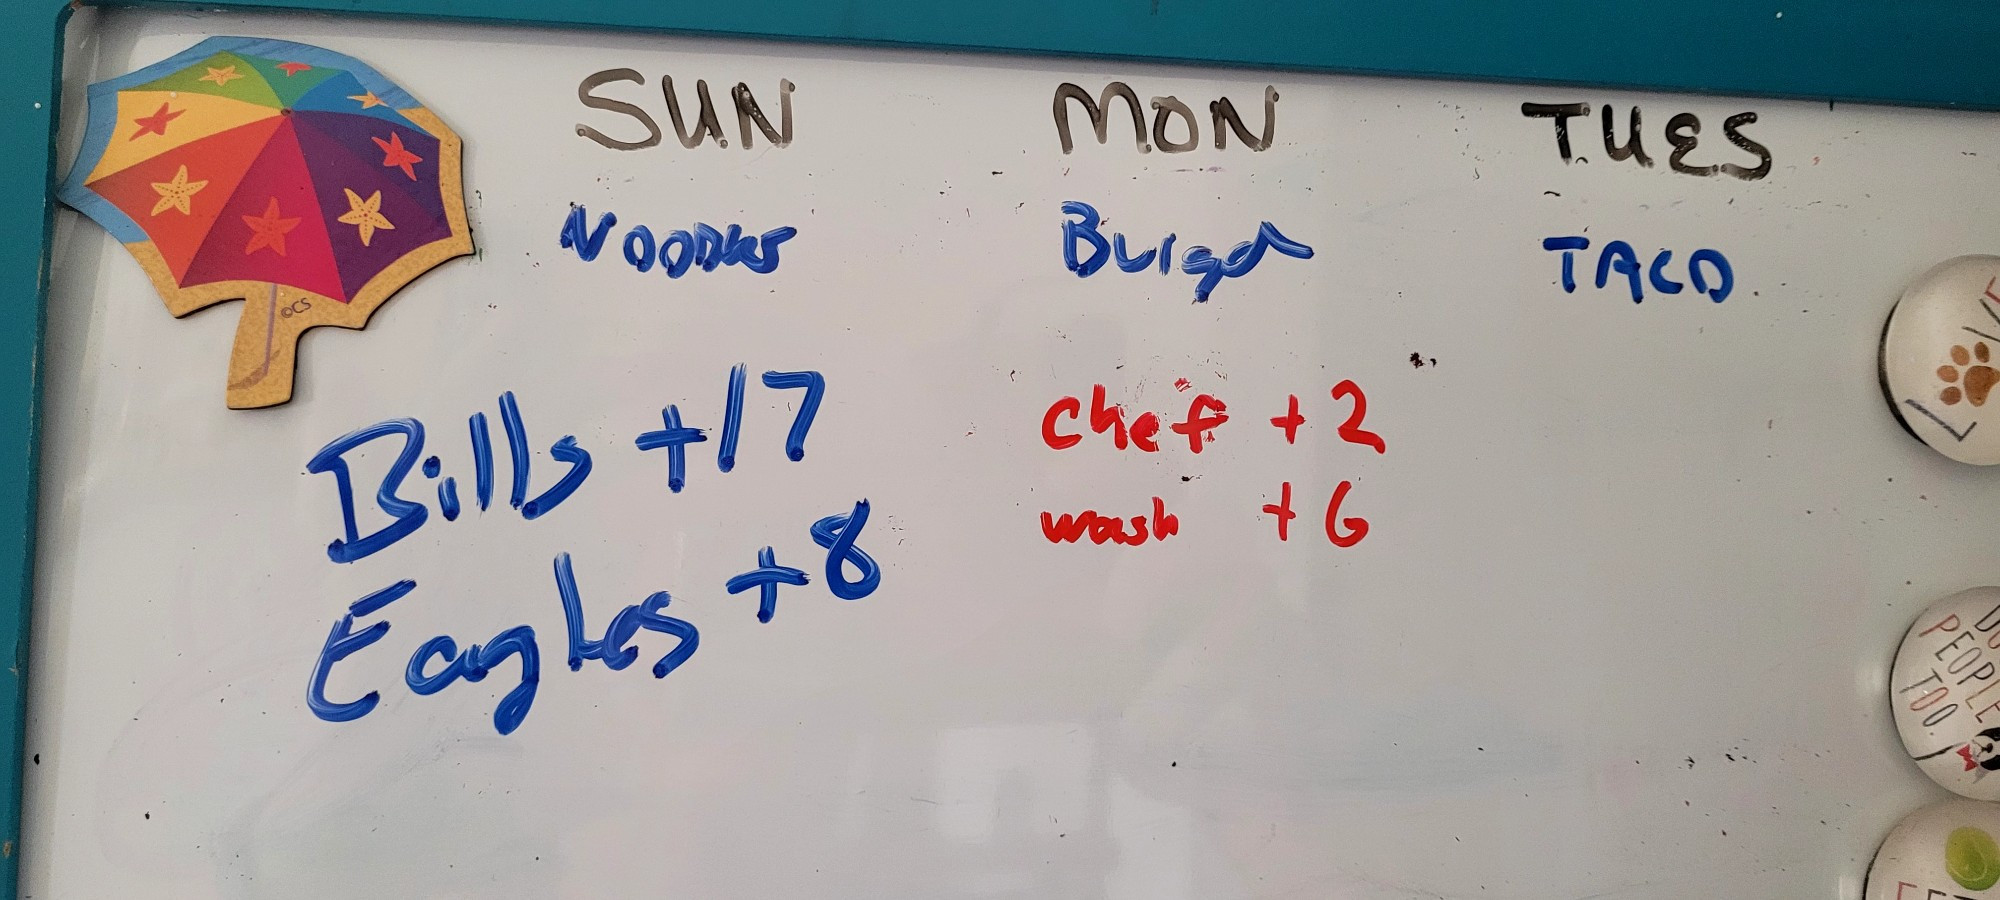 SUN MON TUES
NOODLES Burger TACO
Bills +17
Eagles +8
chef +2
wash +6
©CS
L VE
PEOPLE
TOO.